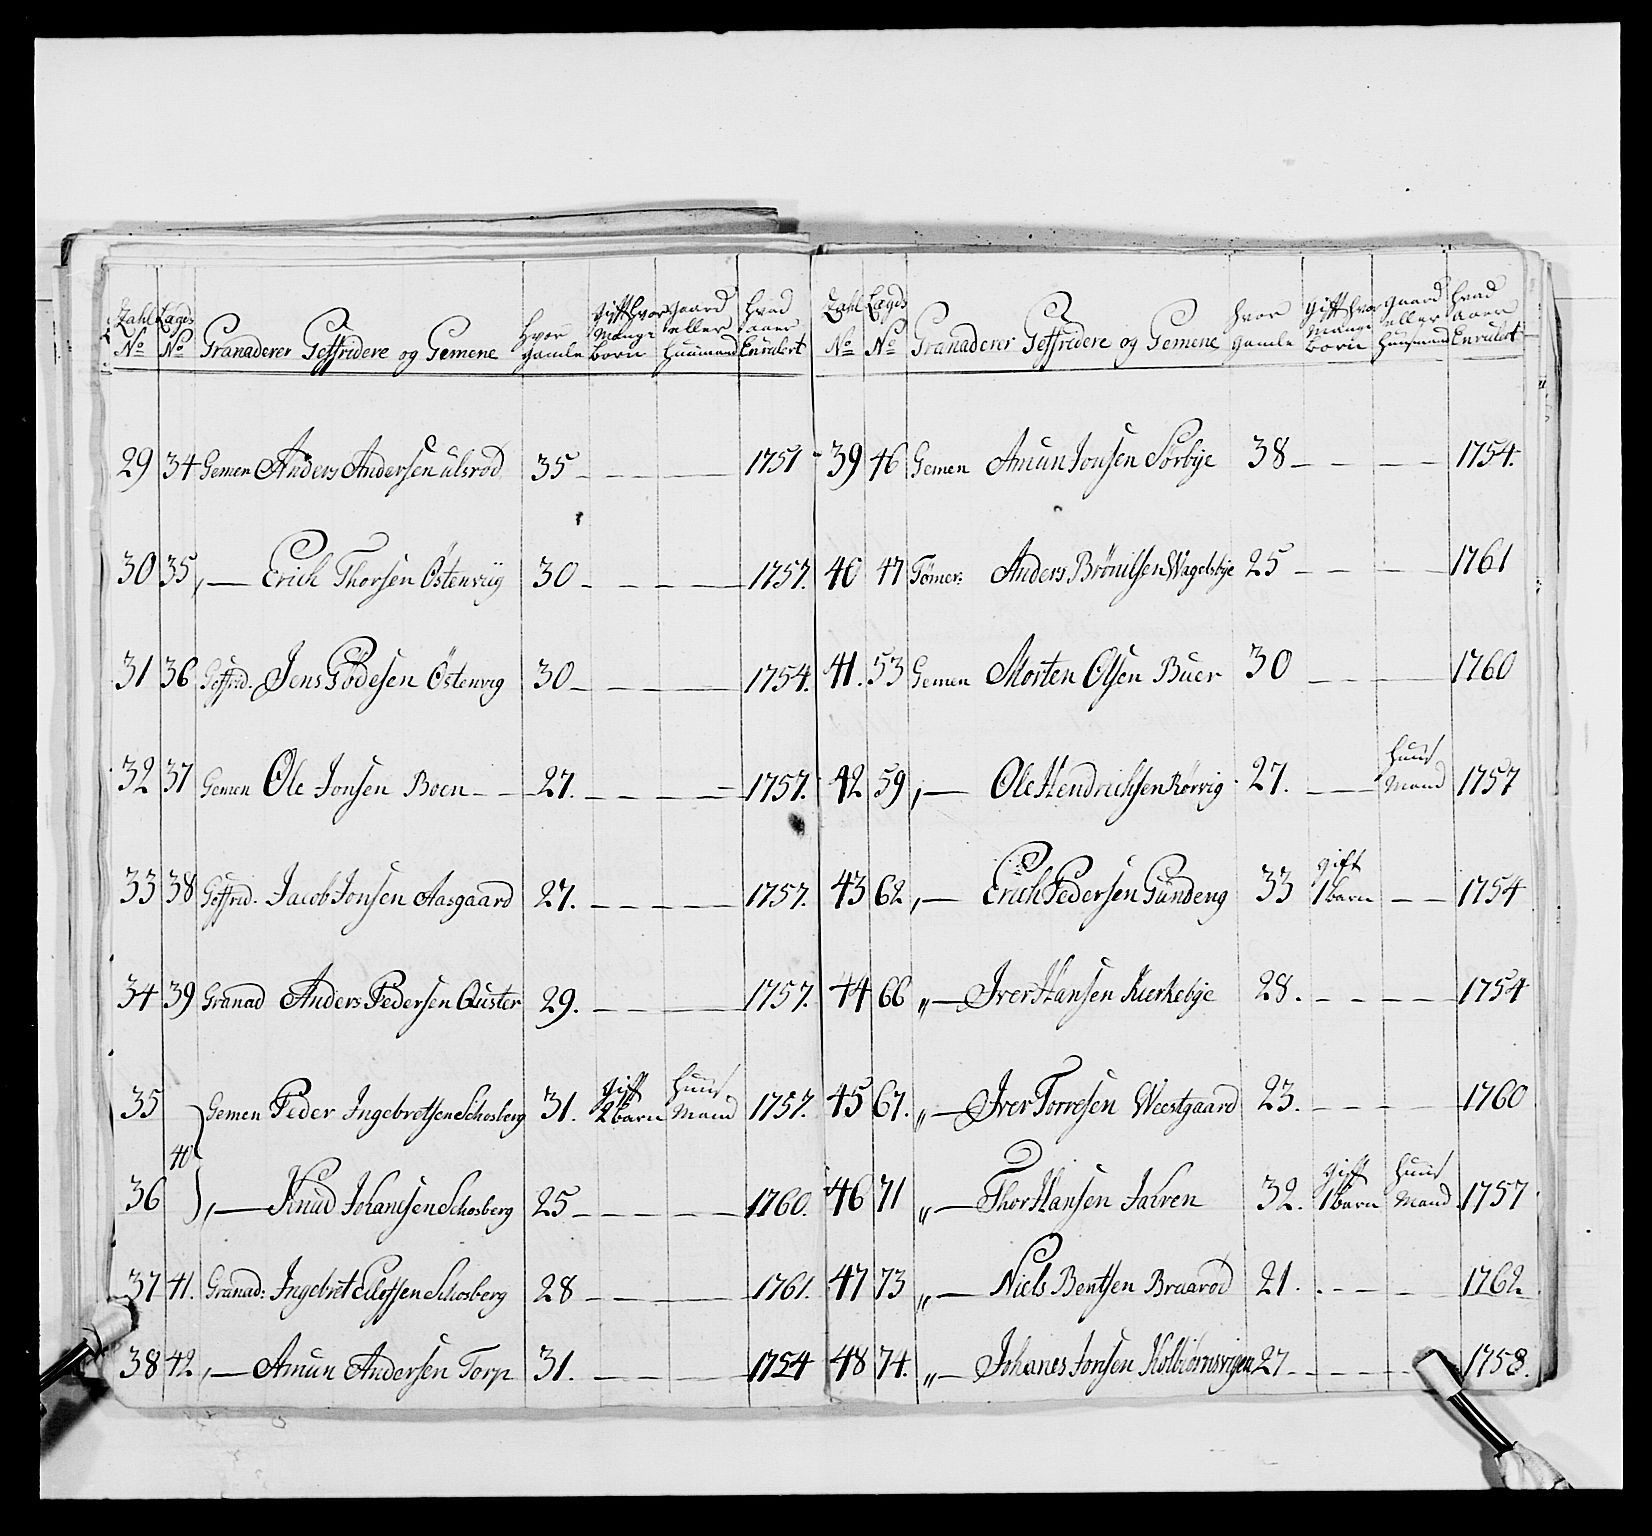 Zahl No Lægds No Granaderer Geffridere og Gemene hvor gamle gift hvor mange born gaard eller huusmand hvad aaer Enrulert
29 34 Gemen Anders Andersen ulsrod 35 - - - 1751
30 35 „— Erich Thorsen Östenviig 30 - - - 1757.
31 36 Geffrid. Jens Gödesen Östenvig 30 - - - 1754.
32 37 Gemen Ole Jonsen Boen - - 27. - - - 1757.
33 38 Geffrid. Jacob Jonsen Aasgaard 27. - - - 1757.
34 39 Granad Anders Pedersen Quster 29. - - - 1757.
35 40 Gemen Peder Ingebretsen Schosberg 31. gift 2 barn huus Mand 1757.
36 „— Knud Johansen Schosberg 25 - - - 1760.
37 41. Granad: Ingebret Ellefsen Schosberg 28 - - - 1761.
38 42 „— Amun Andersen Torp 31. - - - 1754
Zahl No Lægds No Granaderer Geffridere og Gemene hvor gamle gift hvor mange born gaard eller huusmand hvad aaer Enrulert
39 46 Gemen Amun Jonsen Sörbye 38 - - - 1754.
40 47 Tömer: Anders Brönilsen Wagelsbye 25 - - - 1761
41. 53 Gemen Morten Olsen Buer 30 - - - 1760
42 59 „— Ole Hendrichsen Rörvig 27. - - huus Mand 1757
43 62 „— Erich Pedersen Gundeng 33 gift 1 barn - - 1754
44 66 „— Iver Hansen Kierkebye 28. - - - 1754
45 67. „— Iver Torresen Weestgaard 23. - - - 1760
46 71 „— Thor Hansen Jahren 32. gift 1 barn huus Mand 1757
47 73 „— Niels Bentsen Braarod 21. - - - 1762
48 74. „— Johanes Jonsen Kolbiörnsvigen 27 - - - 1758.